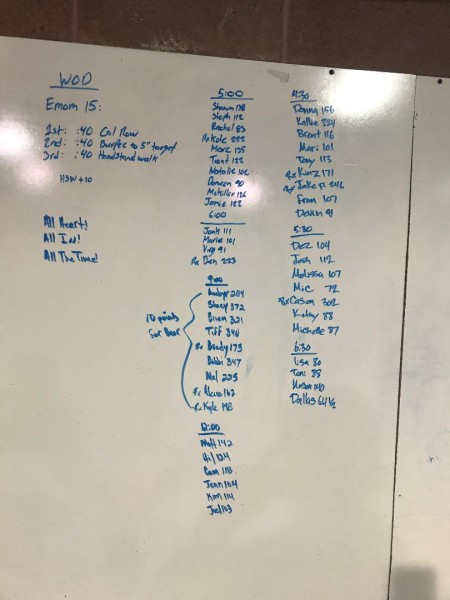 WOD
Emom 15:
1st: :40 Cal Row
2nd: :40 Burpee to 5" target
3rd: :40 Handstand walk
HSW + 10
All Heart!
All In!
All The Time!
5:00
Shawn 138
Steph 112
Rachel 83
Rx Kole 222
Marc 135
Trent 122
Natalie 102
Doreen 90
126
Jamie 122
6:00
111
Maria 101
Virg 91
Rx Ben 223
9:00
10 points
For Bear
284
Stacy 372
Brian 321
Tiff 340
Rx Brady 173
Bobbi 347
Mal 223
Rx 162
Rx Kyle 198
12:00
Matt 142
124
118
Jenn 104
Kim 114
Joel 103
4:30
Donny 156
Kallie 224
Brent 116
Mari 101
Tony 113
Rx Kimz 171
Rx Jake P. 246
Fran 107
Devin 91
5:30
Dez 104
Josh 112
Melissa 107
Mic 72
Rx Cason 302
Kelley 88
Michelle 87
6:30
Lisa 80
Toni 88
140
Dallas 64 1/2